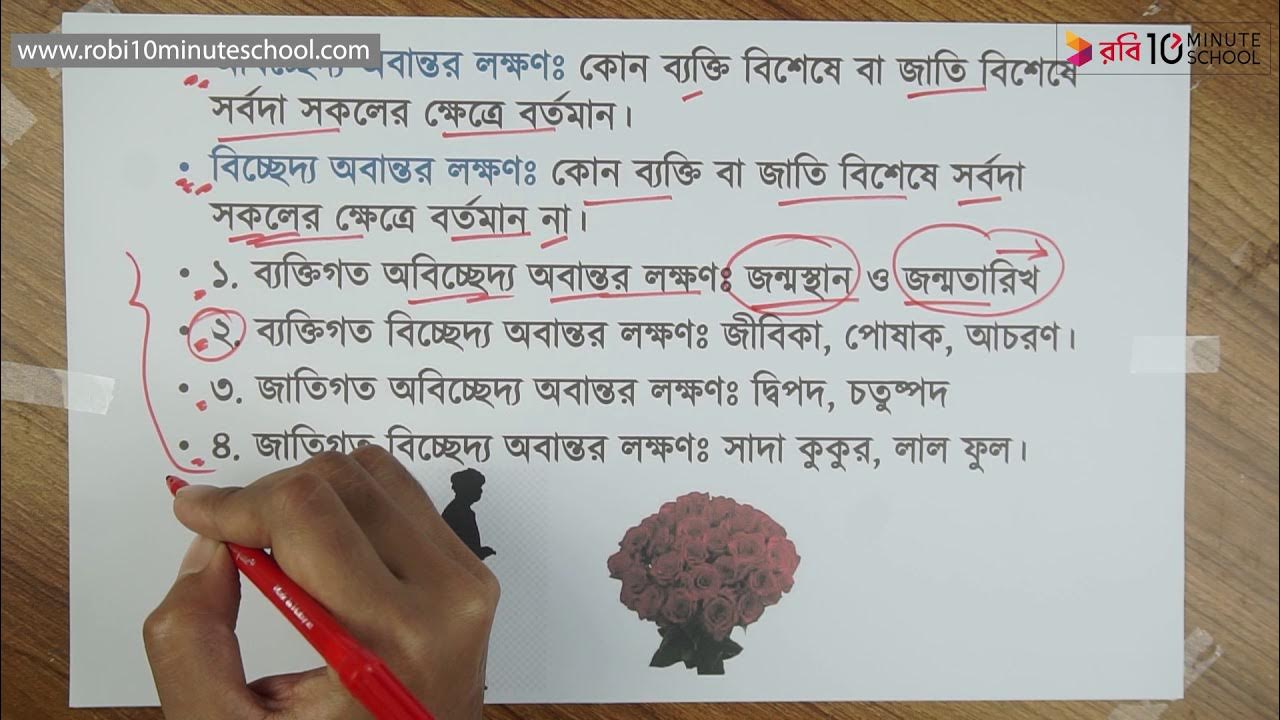 www.robi10minuteschool.com
রবি 10 MINUTE SCHOOL
অবান্তর লক্ষণঃ কোন ব্যক্তি বিশেষে বা জাতি বিশেষে
সর্বদা সকলের ক্ষেত্রে বর্তমান।
• বিচ্ছেদ্য অবান্তর লক্ষণঃ কোন ব্যক্তি বা জাতি বিশেষে সর্বদা
সকলের ক্ষেত্রে বর্তমান না।
• ১. ব্যক্তিগত অবিচ্ছেদ্য অবান্তর লক্ষণঃ জন্মস্থান ও জন্মতারিখ
• ২. ব্যক্তিগত বিচ্ছেদ্য অবান্তর লক্ষণঃ জীবিকা, পোষাক, আচরণ।
• ৩. জাতিগত অবিচ্ছেদ্য অবান্তর লক্ষণঃ দ্বিপদ, চতুষ্পদ
• ৪. জাতিগত বিচ্ছেদ্য অবান্তর লক্ষণঃ সাদা কুকুর, লাল ফুল।